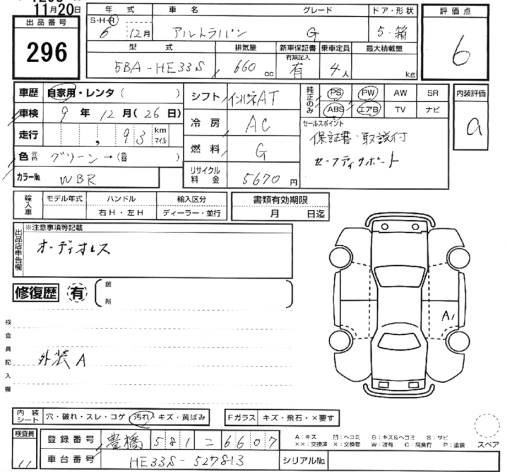 11月20日
出品番号
296
年式
S・H・R
6 12月
車名
アルトラパン
グレード
G
ドア・形状
5・箱
評価点
6
型式
5BA-HE33S
排気量
660 cc
新車保証書 有 記入有
乗車定員
4人
最大積載量
kg
車歴 自家用・レンタ( )
車検 9年12月(26日)
走行 , 93 km マイル
色 グリーン→( )
カラーNo WBR
シフト インパネAT
冷房 AC
燃料 G
リサイクル料金 5670円
純正のみ
PS PW AW SR
ABS エアB TV ナビ
セールスポイント
保証書・取説付
セーフティサポート
内装評価
a
輸入車
モデル年式 ハンドル 輸入区分
右H・左H ディーラー・並行
書類有効期限
月 日迄
出品店申告欄
※注意事項等記載
オーディオレス
修復歴 有
箇所
検査員記入欄
外装A
A1
内装シート 穴・破れ・スレ・コゲ・汚れ・キズ・黄ばみ
Fガラス キズ・飛石・×要す
検査員
登録番号 豊橋 581 = 6607
車台番号 HE33S-527813
シリアルNo.
A：キズ U：ヘコミ B：キズ&ヘコミ S：サビ
××：交換済 ×：交換要 W：波有 C：腐食 P：塗装
スペア